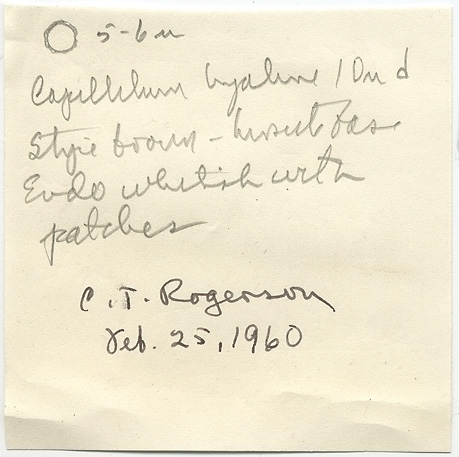 5-6 u
Capillitium hyaline 10u d
Stipe brown - base
Endo whitish with
patches
C. T. Rogerson
Feb. 25, 1960